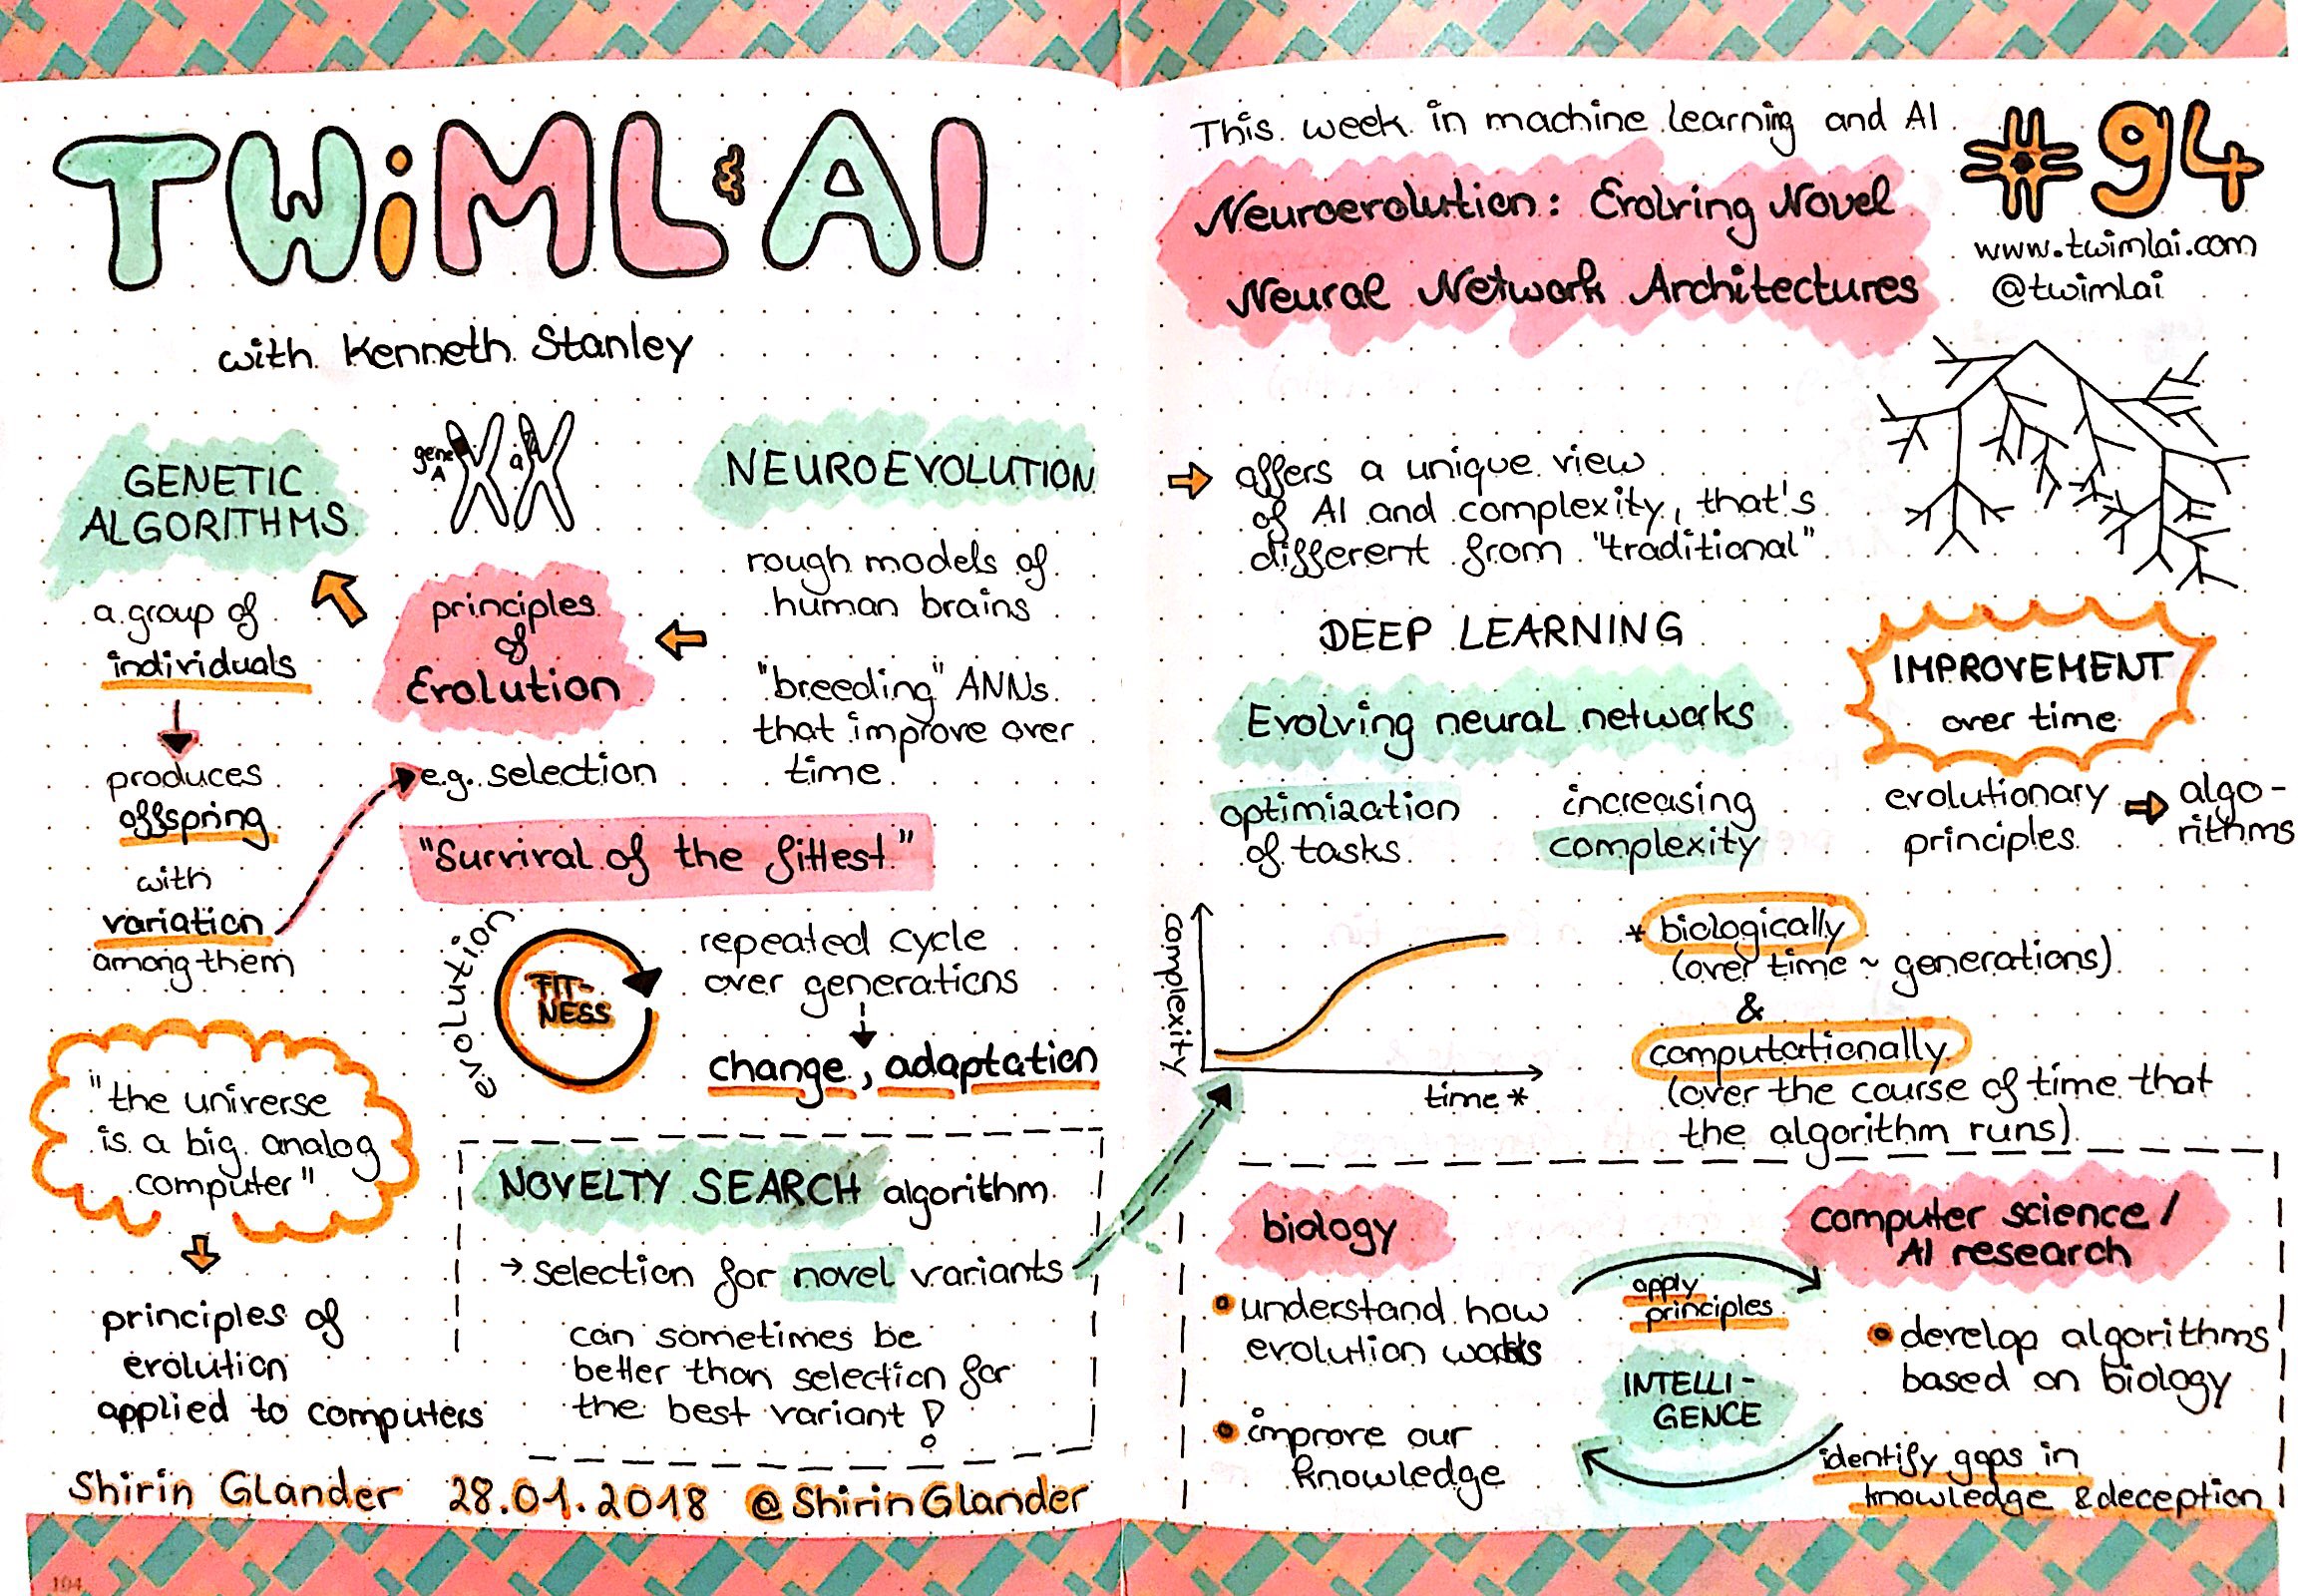 TWiML & AI
with Kenneth Stanley
GENETIC
ALGORITHMS
gene
A
a
NEUROEVOLUTION
a group of
individuals
produces
offspring
with
variation
among them
principles
of
Evolution
e.g. selection
rough models of
human brains
"breeding" ANNs
that improve over
time
"Survival of the fittest"
evolution
FIT-
NESS
repeated cycle
over generations
change, adaptation
"the universe
is a big analog
computer"
principles of
evolution
applied to computers
NOVELTY SEARCH algorithm
→ selection for novel variants
can sometimes be
better than selection for
the best variant!
Shirin Glander 28.01.2018 @ShirinGlander
104
This week in machine learning and AI
#94
www.twimlai.com
@twimlai
Neuroevolution: Evolving Novel
Neural Network Architectures
offers a unique view
of AI and complexity, that's
different from "traditional"
DEEP LEARNING
Evolving neural networks
optimization
of tasks
increasing
complexity
IMPROVEMENT
over time
evolutionary
principles
algo-
rithms
complexity
time *
* biologically
(over time ~ generations)
&
computationally
(over the course of time that
the algorithm runs)
biology
understand how
evolution works
improve our
knowledge
apply
principles
INTELLI-
GENCE
computer science /
AI research
develop algorithms
based on biology
identify gaps in
knowledge & deception